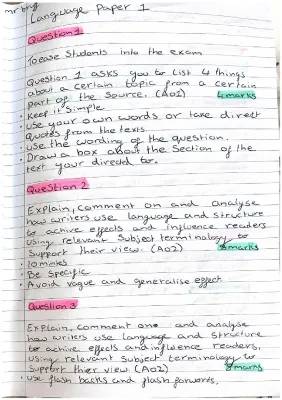 mr bry
Language Paper 1
Question 1
To ease students into the exam
Question 1 asks you to list 4 things
about a certain topic from a certain
part of the source. (AO1) 4 marks
• Keep it simple
• Use your own words or take direct
quotes from the texts
• Use the wording of the question.
• Draw a box about the section of the
text your direcdd to.
Question 2
Explain, comment on and analyse
how writers use language and structure
to achive effects and influence readers
using relevant subject terminology to
support their view. (AO2) 8 marks
• 10 mintes
• Be specific
• Avoid vague and generalise effect
Question 3
Explain, comment one and analyse
how writers use language and structure
to achive effects and influence readers,
using relevant subject terminology to
support thier view. (AO2) 8 marks
• use flash backs and flash forwords.